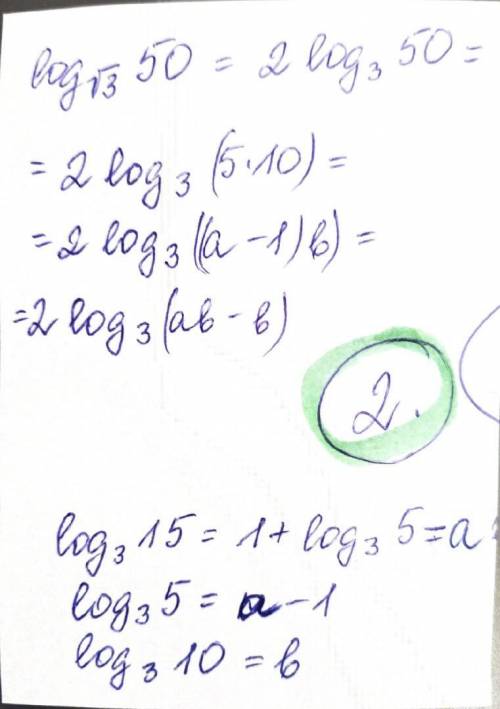 log√3 50 = 2 log₃ 50 =
= 2 log₃ (5·10) =
= 2 log₃ ((a - 1) b) =
= 2 log₃ (ab - b)
2.
log₃ 15 = 1 + log₃ 5 = a
log₃ 5 = a - 1
log₃ 10 = b